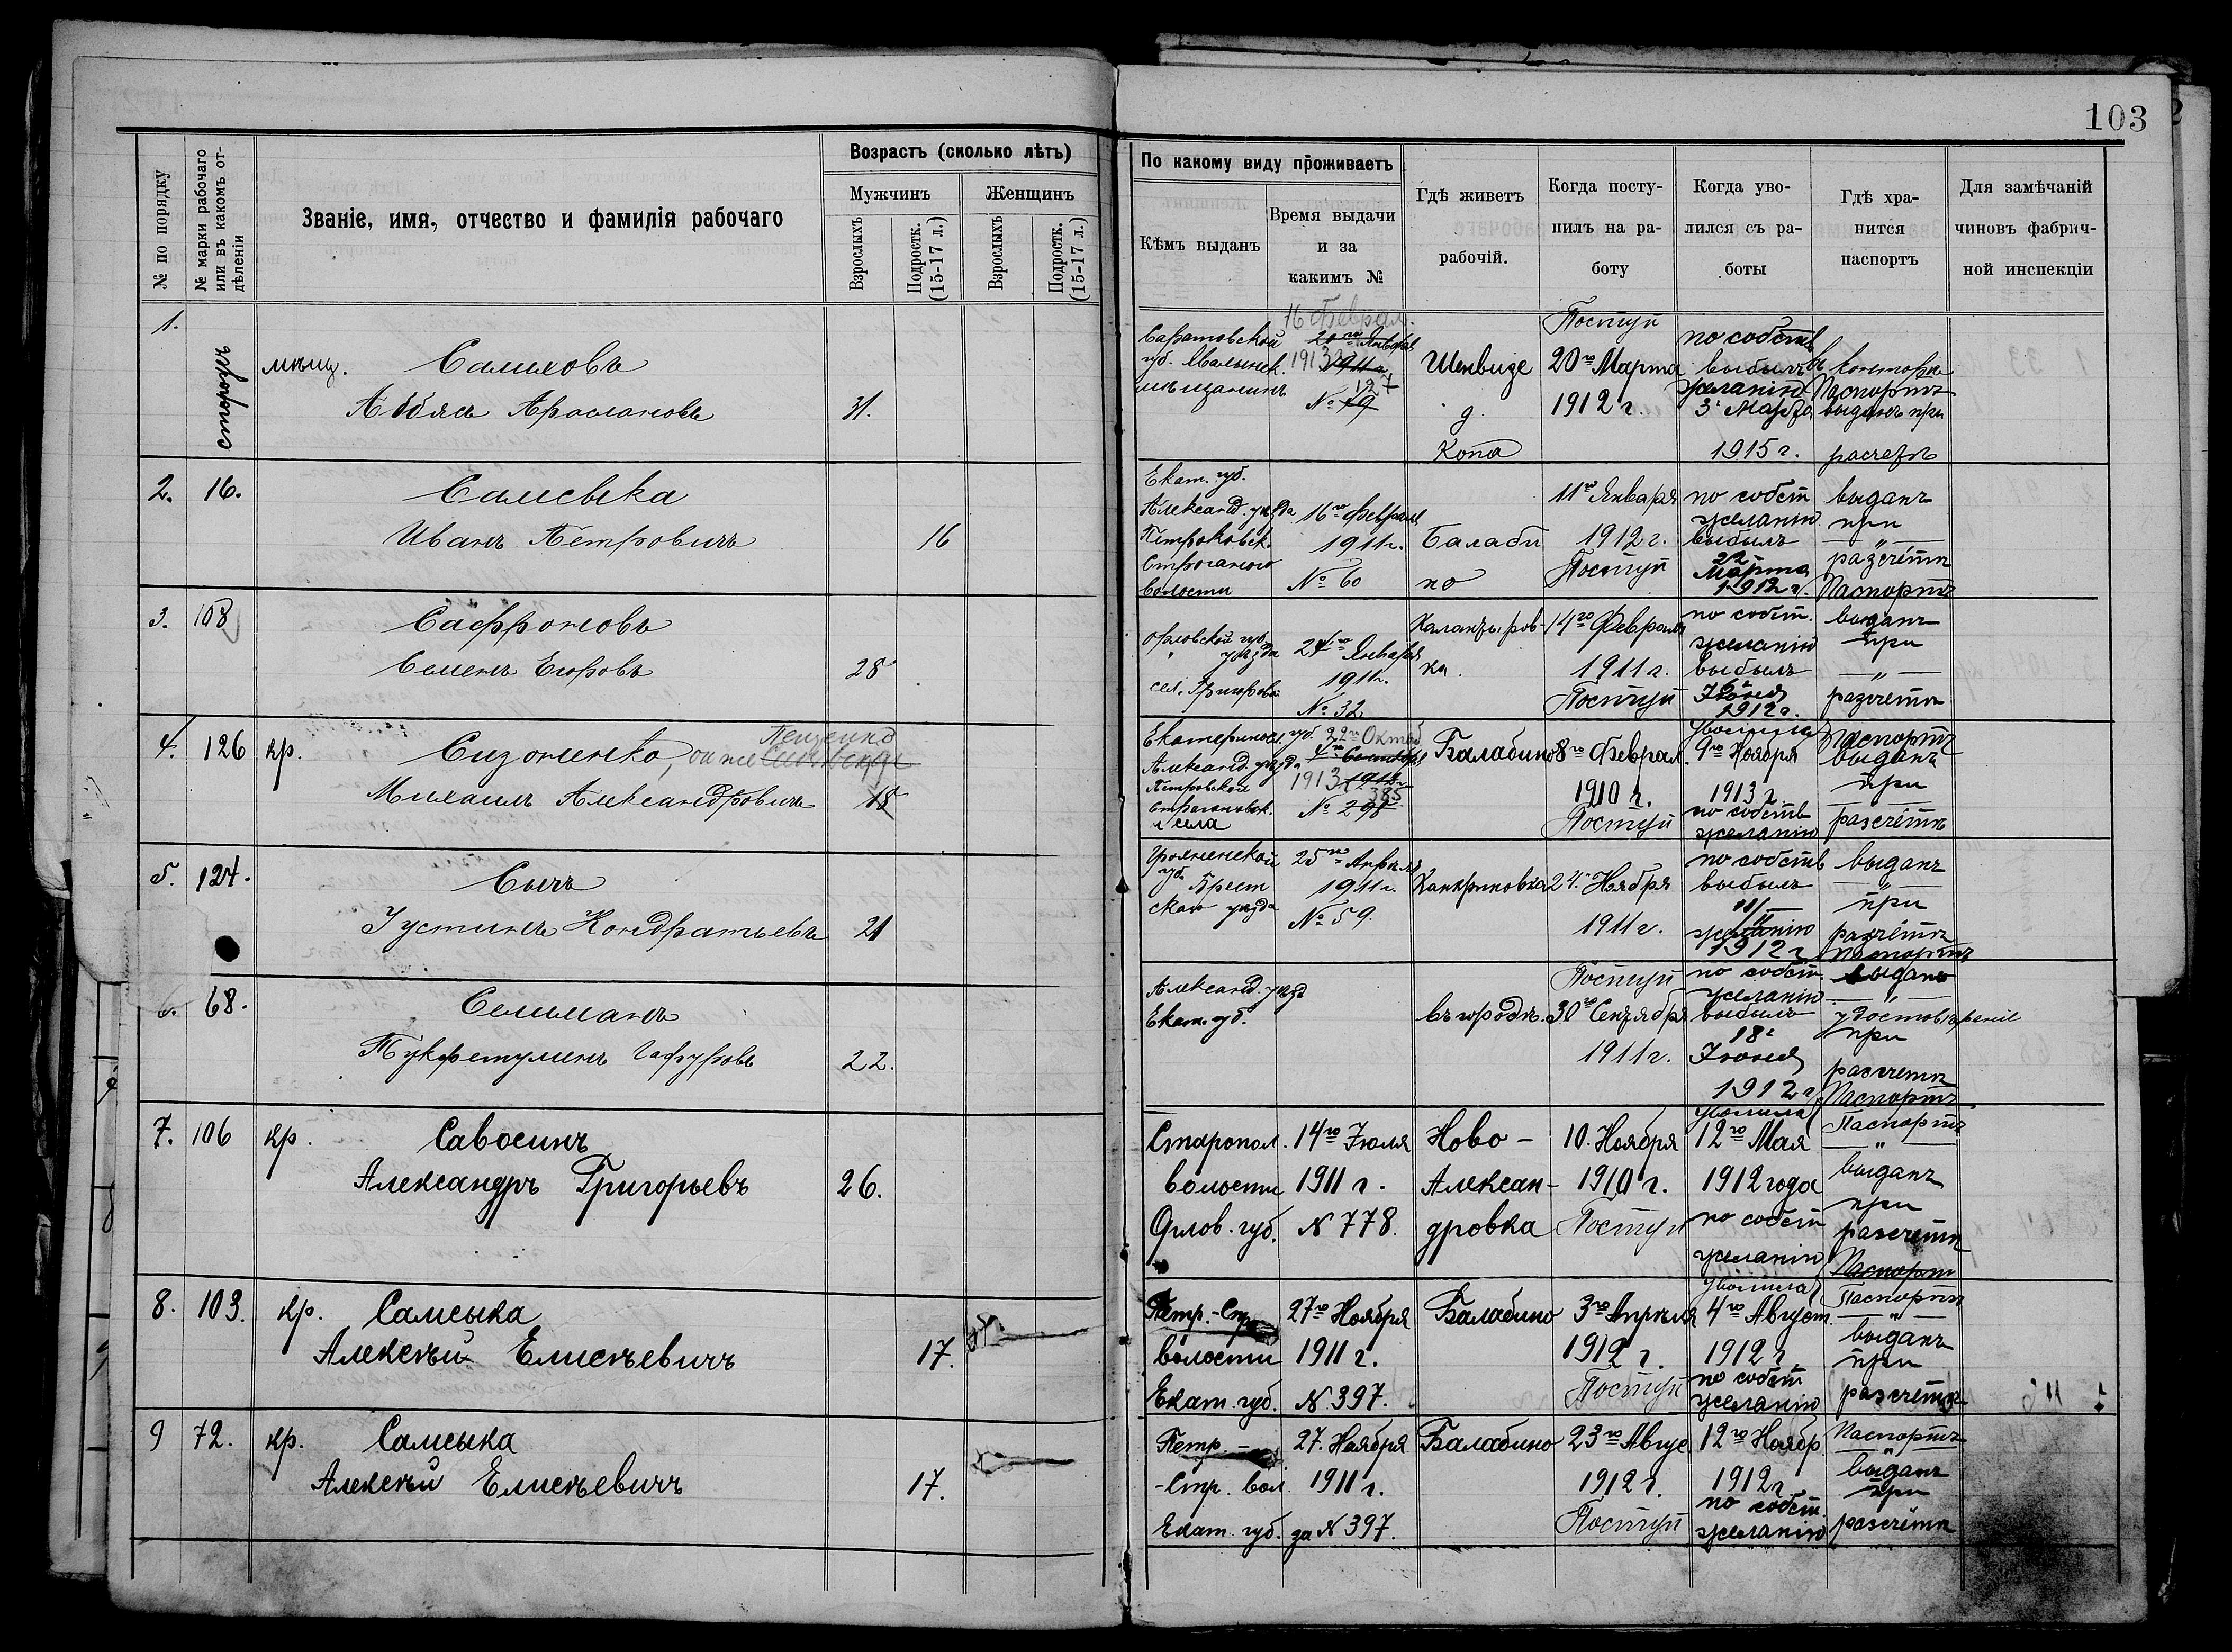 103
№ по порядку
№ марки рабочаго или въ какомъ отдѣленіи
Званіе, имя, отчество и фамилія рабочаго
Возрастъ (сколько лѣтъ)
Мужчинъ
Женщинъ
Взрослыхъ
Подростк. (15-17 л.)
Взрослыхъ
Подростк. (15-17 л.)
По какому виду проживаетъ
Кѣмъ выданъ
Время выдачи
и за
какимъ №
Гдѣ живетъ
рабочій.
Когда посту-
пилъ на ра-
боту
Когда уво-
лился съ ра-
боты
Гдѣ хра-
нится
паспортъ
Для замѣчаній
чиновъ фабрич-
ной инспекціи
1.
сторожъ
мѣщ. Салиховъ
Аббясъ Арослановъ
31.
Саратовской
губ. Хвалынск.
мѣщанинъ
16 Феврал.
20го Января
1913 1911 г.
127
№ 19
Шенвизе
д.
Копа
Поступ
20го Марта
1912 г.
по собств
выбылъ
желанію
3 Марта
1915 г.
въ конторѣ
Паспортъ
выданъ при
расчетѣ
2. 16.
Самсыка
Иванъ Петровичъ
16
Екат. губ.
Александ. уѣзда
Петроковск.
Строганого
волости
16го Февраля
1911 г.
№ 60
Балаби
но
11го Января
1912 г.
Поступ
по собст
желанію
выбылъ
22
Марта
1912 г.
выданъ
при
— „ —
разсчётѣ
Паспортъ
3. 108
Сафроновъ
Семенъ Егоровъ
28
Орловской губ.
" уѣзда
сел. Григорова
24го Января
1911 г.
№ 32
ка.
14го Февраля
1911 г.
Поступ
по собст.
желанію
выбылъ
6
Іюня
1912 г.
выданъ
при
— „ —
разсчетѣ
4. 126 кр.
Сизоненко, он же
Пещенко
Михаилъ Александровичъ
18
Екатеринос. губ.
Александ. уѣзда
Петровской
Строгановск.
села
22го Октяб
4го Сентября
1913 1912 г.
385
№ 298
Балабино
8го Феврал.
1910 г.
Поступ
Уволился
9го Ноября
1913 г.
по собств
желанію
Паспортъ
выданъ
при
разсчётѣ
5. 124.
Сычъ
Іустинъ Кондратьевъ
21
Гродненской
губ. Брест
скаго уѣзда
25го Апрѣля
1911 г.
№ 59.
Канкриновка
24. Ноября
1911 г.
по собств
выбылъ
11/II
желанію
1912 г
выданъ
— „ —
при
разчётѣ
Паспортъ
6. 68.
Селиманъ
Гафуровъ
22.
Александ. уѣзд
Екат. губ.
въ городѣ.
Поступ
30го Сентября
1911 г.
по собст.
желанію
выбылъ
18г
Іюня
1912 г.
выдано
— „ —
удостовѣреніе
при
разсчетѣ
Паспортъ
7. 106 кр.
Савосинъ
Александръ Григорьевъ
26.
Старопол.
волости
Орлов. губ.
14го Іюля
1911 г.
N 778.
Ново-
Алексан-
дровка
10. Ноября
1910 г.
Поступ
Уволился
12го Мая
1912 года
по собст
желанію
Паспортъ
— „ —
выданъ
при
разсчётѣ
Паспорт
8. 103. кр.
Самсыка
Алексѣй Елисѣевичъ
17.
Петр.-Стр
волости
Екат. губ.
27го Ноября
1911 г.
N 397.
Балабино
3го Апрѣля
1912 г.
Поступ
Уволился
4го Август.
1912 г.
по собст
желанію
Паспортъ
— „ —
выданъ
при
разсчётѣ
9 72. кр.
Самсыка
Алексѣй Елисѣевичъ
17.
Петр. -
-Стр. вол.
Екат. губ.
27. Ноября
1911 г.
за N 397.
Балабино
23го Авгус
1912 г.
Поступ
12го Ноябр.
1912 г.
по собст.
желанію
Паспортъ
— „ —
выданъ
при
разсчётѣ